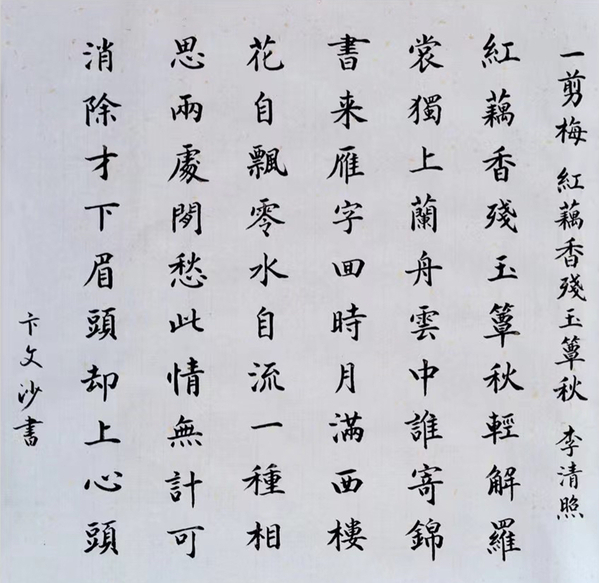 一剪梅 紅藕香殘玉簟秋 李清照
紅藕香殘玉簟秋輕解羅
裳獨上蘭舟雲中誰寄錦
書来雁字回時月滿西樓
花自飄零水自流一種相
思兩處閒愁此情無計可
消除才下眉頭却上心頭
卞文沙書